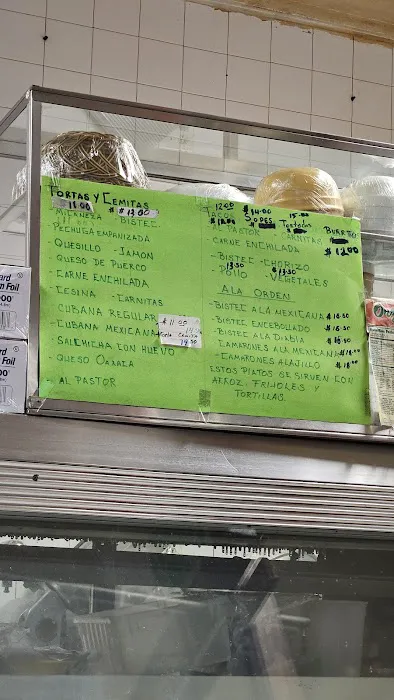 TORTAS Y CEMITAS
11.00 $ $ 13.00
MILANESA - BISTEC
PECHUGA EMPANIZADA
QUESILLO - JAMON
QUESO DE PUERCO
- CARNE ENCHILADA
- CESINA - CARNITAS
- CUBANA REGULAR
- CUBANA MEXICANA
SALCHICHA CON HUEVO
- QUESO OAXACA
- AL PASTOR
$ 11.00
12.00 $ 14.00 15.00
TACOS SOPES Tostadas BURRITO
AL PASTOR CARNITAS
CARNE ENCHILADA $ 12.00
- BISTEC - CHORIZO
13.50 $ 13.50
- POLLO - VEGETALES
A LA ORDEN
- BISTEC A LA MEXICANA $ 16.50
- BISTEC ENCEBOLLADO $ 16.50
- BISTEC A LA DIABLA $ 16.50
- CAMARONES A LA MEXICANA $ 18.00
- CAMARONES AL AJILLO $ 18.00
ESTOS PLATOS SE SIRVEN CON
ARROZ, FRIJOLES Y
TORTILLAS.
Foil
00'
Foil